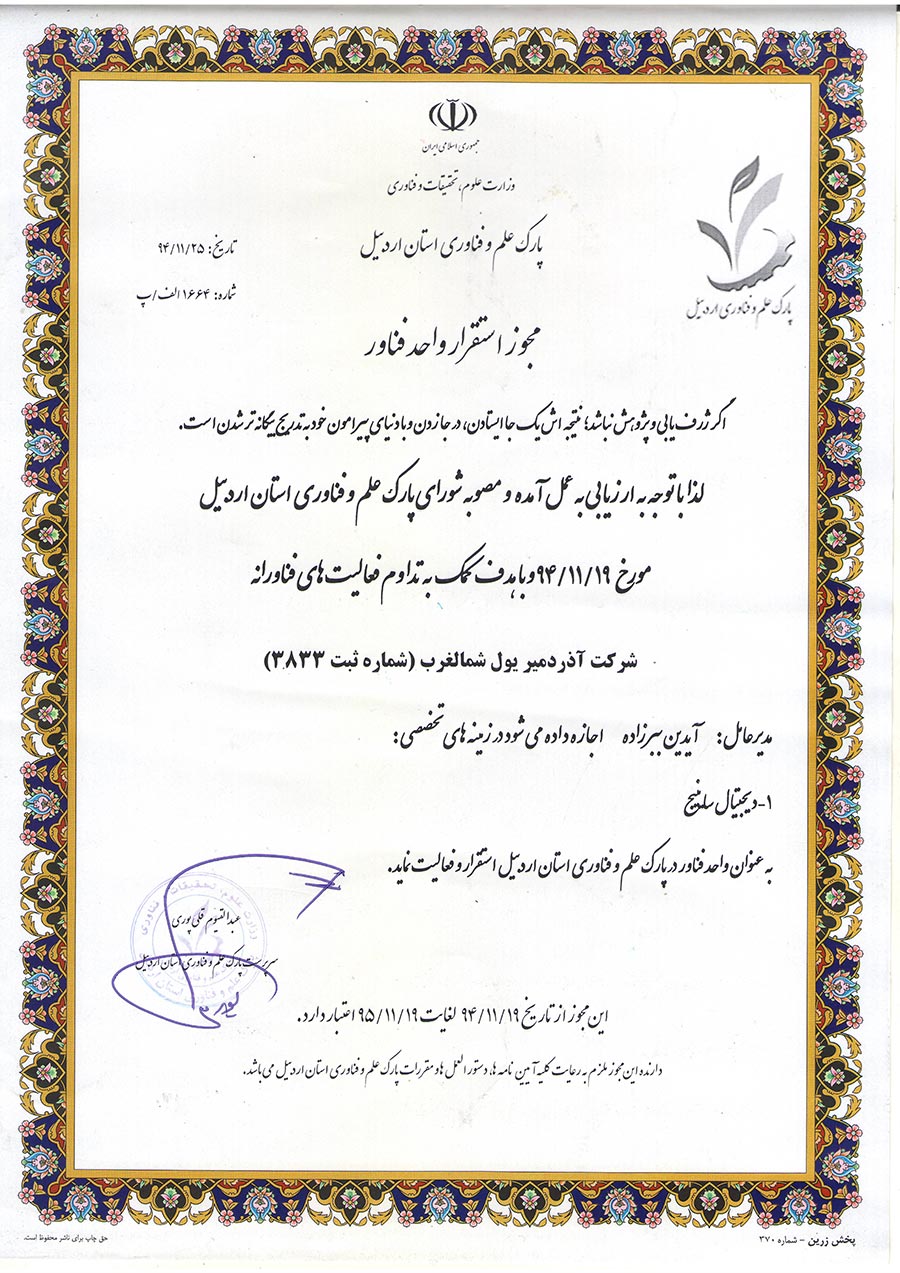 جمهوری اسلامی ایران
وزارت علوم، تحقیقات و فناوری
پارک علم و فناوری استان اردبیل
تاریخ: ۹۴/۱۱/۲۵
شماره: ۱۶۶۴الف/پ
پارک علم و فناوری اردبیل
مجوز استقرار واحد فناور
اگر ژرف یابی و پژوهش نباشد؛ نتیجه اش یک جا ایستادن، در جا زدن و با دنیای پیرامون خود به تدریج بیگانه تر شدن است.
لذا با توجه به ارزیابی به عمل آمده و مصوبه شورای پارک علم و فناوری استان اردبیل
مورخ ۹۴/۱۱/۱۹ و با هدف کمک به تداوم فعالیت های فناورانه
شرکت آذردمیر یول شمالغرب (شماره ثبت ۳۸۳۳)
مدیرعامل: آیدین ببرزاده اجازه داده می شود در زمینه های تخصصی:
۱-دیجیتال ساینیج
به عنوان واحد فناور در پارک علم و فناوری استان اردبیل استقرار و فعالیت نماید.
عبدالقیوم قلی پوری
سرپرست پارک علم و فناوری استان اردبیل
این مجوز از تاریخ ۹۴/۱۱/۱۹ لغایت ۹۵/۱۱/۱۹ اعتبار دارد.
دارنده این مجوز ملزم به رعایت کلیه آیین نامه ها، دستورالعمل ها و مقررات پارک علم و فناوری استان اردبیل می باشد.
پخش زرین - شماره ۳۷۰
حق چاپ برای ناشر محفوظ است.